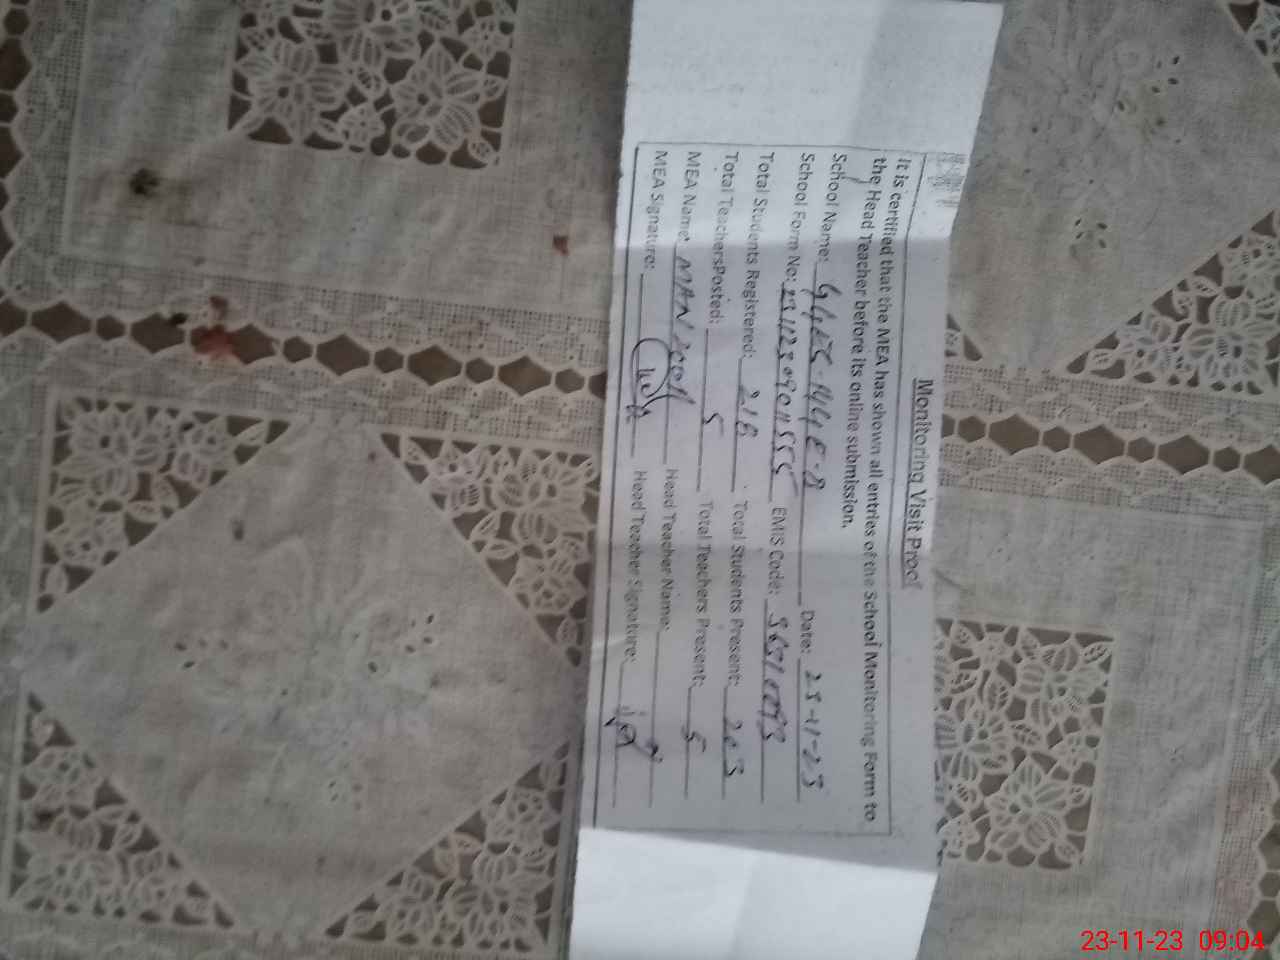 Monitoring Visit Proof
It is certified that the MEA has shown all entries of the School Monitoring Form to
the Head Teacher before its online submission.
School Name: Date: 23-11-23
School Form No: EMIS Code:
Total Students Registered: 218 Total Students Present: 203
Total TeachersPosted: 5 Total Teachers Present: 5
MEA Name: Head Teacher Name:
MEA Signature: Head Teacher Signature:
23-11-23 09:04